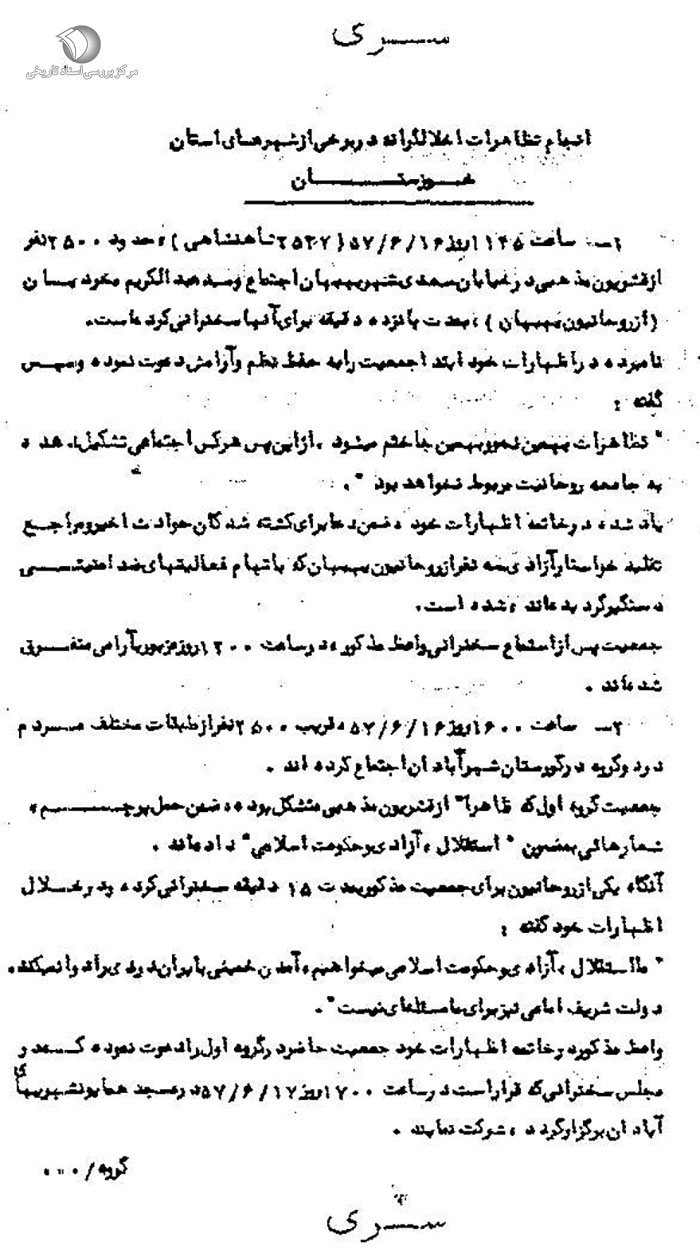 سری
مرکز بررسی اسناد تاریخی
انجام تظاهرات اخلالگرانه در برخی از شهرهای استان
خوزستان
۱ـ ساعت ۱۱۴۵ روز ۵۷/۶/۱۶ (۲۵۳۷ شاهنشاهی)، حدود ۲۵۰۰ نفر
از قشریون مذهبی در خیابان سعدی شهر بهبهان اجتماع و سید عبدالکریم
(از روحانیون بهبهان)، بمدت پانزده دقیقه برای آنها سخنرانی کرده است.
نامبرده در اظهارات خود ابتدا جمعیت را به حفظ نظم و آرامش دعوت نموده و سپس
گفته :
" تظاهرات بهمین نحو و بهمین جا ختم میشود . از این پس هرکس اجتماعی تشکیل دهد
به جامعه روحانیت مربوط نخواهد بود " .
یاد شده در خاتمه اظهارات خود ، ضمن دعا برای کشته شدگان حوادث اخیر و مراجع
تقلید خواستار آزادی سه نفر از روحانیون بهبهان که باتهام فعالیتهای ضد امنیتی
دستگیر گردیده‌اند ، شده است.
جمعیت پس از استماع سخنرانی واعظ مذکور ، در ساعت ۱۲۰۰ روز مزبور بآرامی متفرق
شده‌اند .
۲ـ ساعت ۱۶۰۰ روز ۵۷/۶/۱۶ ، قریب ۲۵۰۰ نفر از طبقات مختلف مردم
در دو گروه در گورستان شهر آبادان اجتماع کرده اند .
جمعیت گروه اول که ظاهرا" از قشریون مذهبی متشکل بوده ، ضمن حمل پرچم ،
شعارهائی بمضمون " استقلال ، آزادی و حکومت اسلامی " داده‌اند .
آنگاه یکی از روحانیون برای جمعیت مذکور بمدت ۱۵ دقیقه سخنرانی کرده و در خلال
اظهارات خود گفته :
" ما استقلال ، آزادی و حکومت اسلامی میخواهیم ، آمدن خمینی بایران دردی را دوا نمیکند ،
دولت شریف امامی نیز برای ما مسئله‌ای نیست " .
واعظ مذکور در خاتمه اظهارات خود جمعیت حاضر در گروه اول را دعوت نموده که در
مجلس سخنرانی که قرار است در ساعت ۱۷۰۰ روز ۵۷/۶/۱۷ در مسجد
آبادان برگزار گردد ، شرکت نمایند .
گروه / ۰۰۰
سری